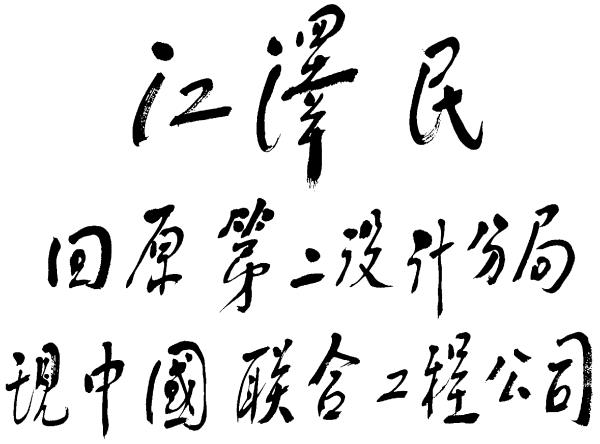 江澤民
回原第二设计分局
現中國联合工程公司